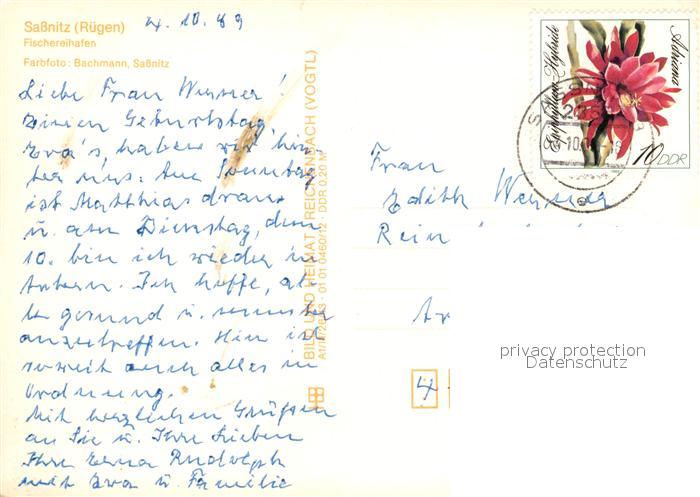 Saßnitz (Rügen)
Fischereihafen
Farbfoto: Bachmann, Saßnitz
4.10.89
Liebe Frau Werner!
Einen Geburtstag,
Eva's, haben wir hin-
ter uns. Am Sonntag
ist Matthias dran
u. am Dienstag, dem
10. bin ich wieder in
Ich hoffe, al-
le gesund u. munter
anzutreffen. Hier ist
soweit auch alles in
Ordnung.
Mit herzlichen Grüßen
an Sie u. Ihre Lieben
Ihre Erna Rudolph
mit Eva u. Familie
BILD UND HEIMAT REICHENBACH (VOGTL)
01 01 0460/12 · DDR 0,20 M
Epiphyllum-Hybride
Adriana
10 DDR
Frau
Edith Werner
Rein
4
privacy protection
Datenschutz